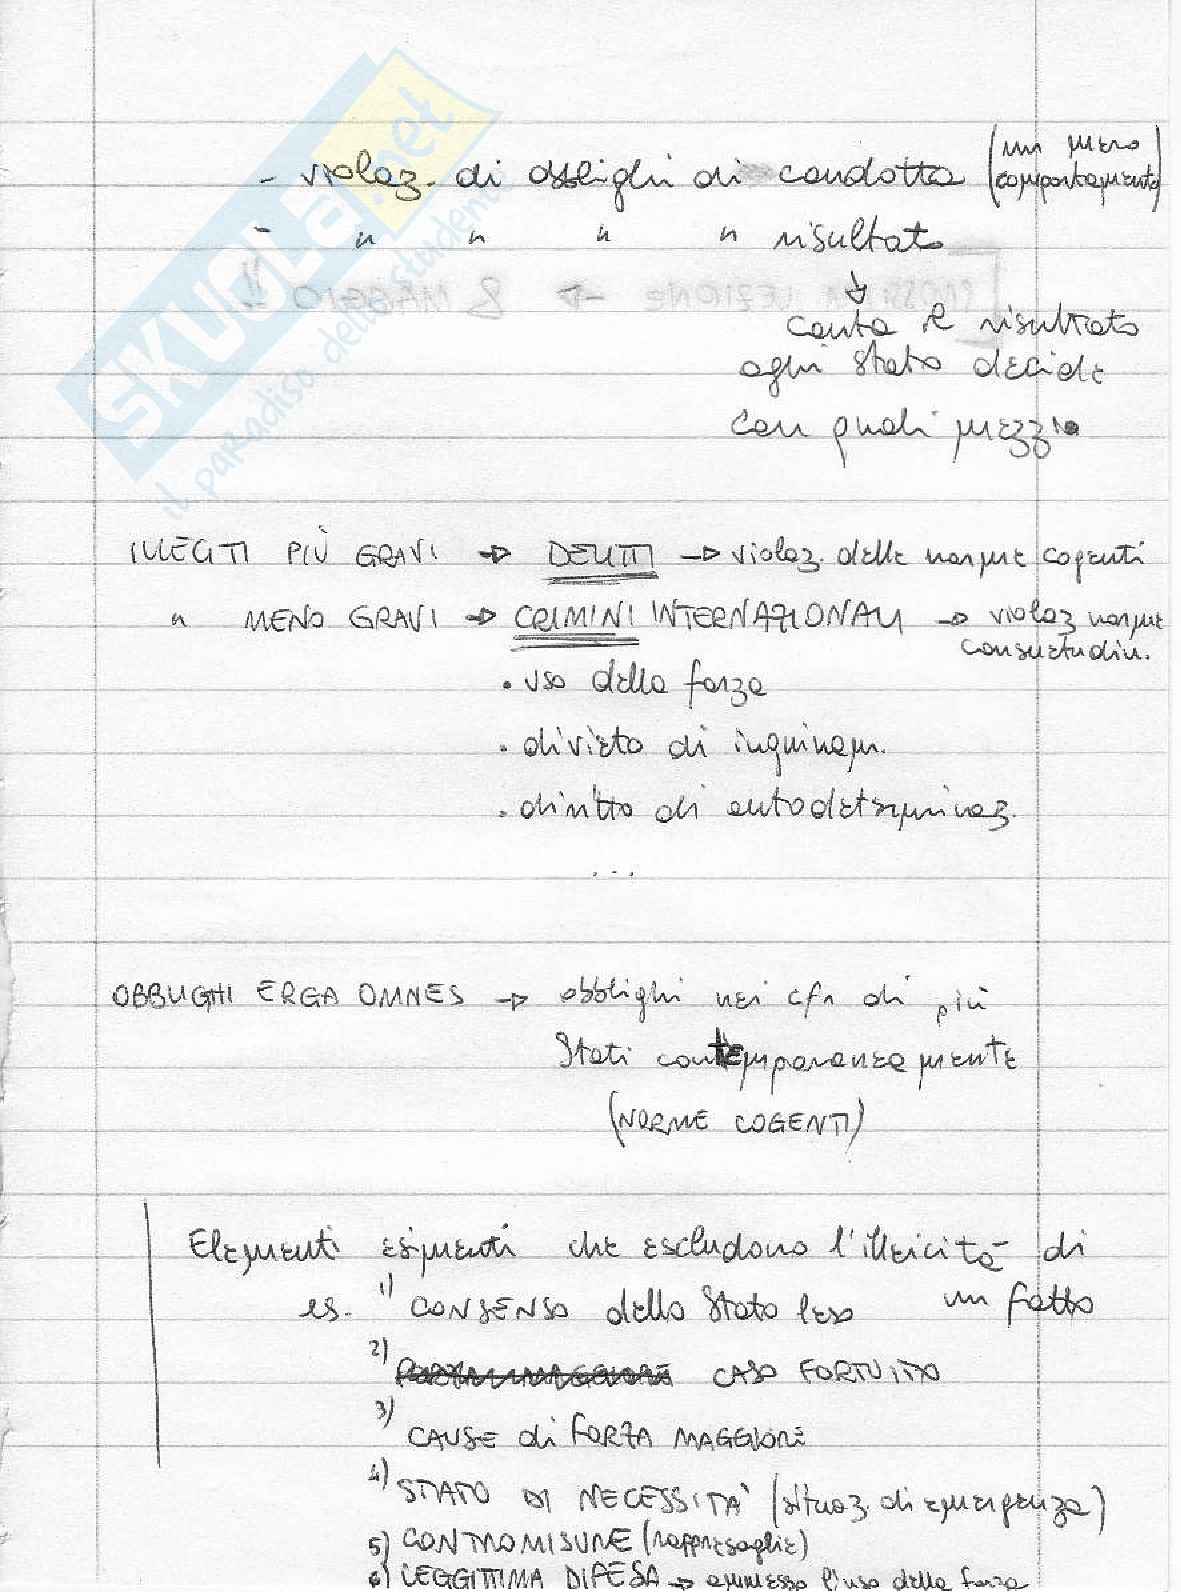 SKUOLA.net
il paradiso dello studente
- violaz. di obblighi di condotta (un mero comportamento)
- " " " " risultato
↓
conta il risultato
ogni stato decide
con quali mezzi
ILLECITI PIÙ GRAVI → DELITTI → violaz. delle norme cogenti
" MENO GRAVI → CRIMINI INTERNAZIONALI → violaz norme
consuetudin.
• uso della forza
• divieto di inquinam.
• diritto di autodeterminaz.
...
OBBLIGHI ERGA OMNES → obblighi nei cfr di più
Stati contemporaneamente
(NORME COGENTI)
Elementi esimenti che escludono l'illeicità di
un fatto
es. 1) CONSENSO dello Stato leso
2) CASO FORTUITO
3) CAUSE di FORZA MAGGIORE
4) STATO DI NECESSITA' (situaz. di emergenza)
5) CONTROMISURE (rappresaglie)
6) LEGGITTIMA DIFESA → ammesso l'uso della forza